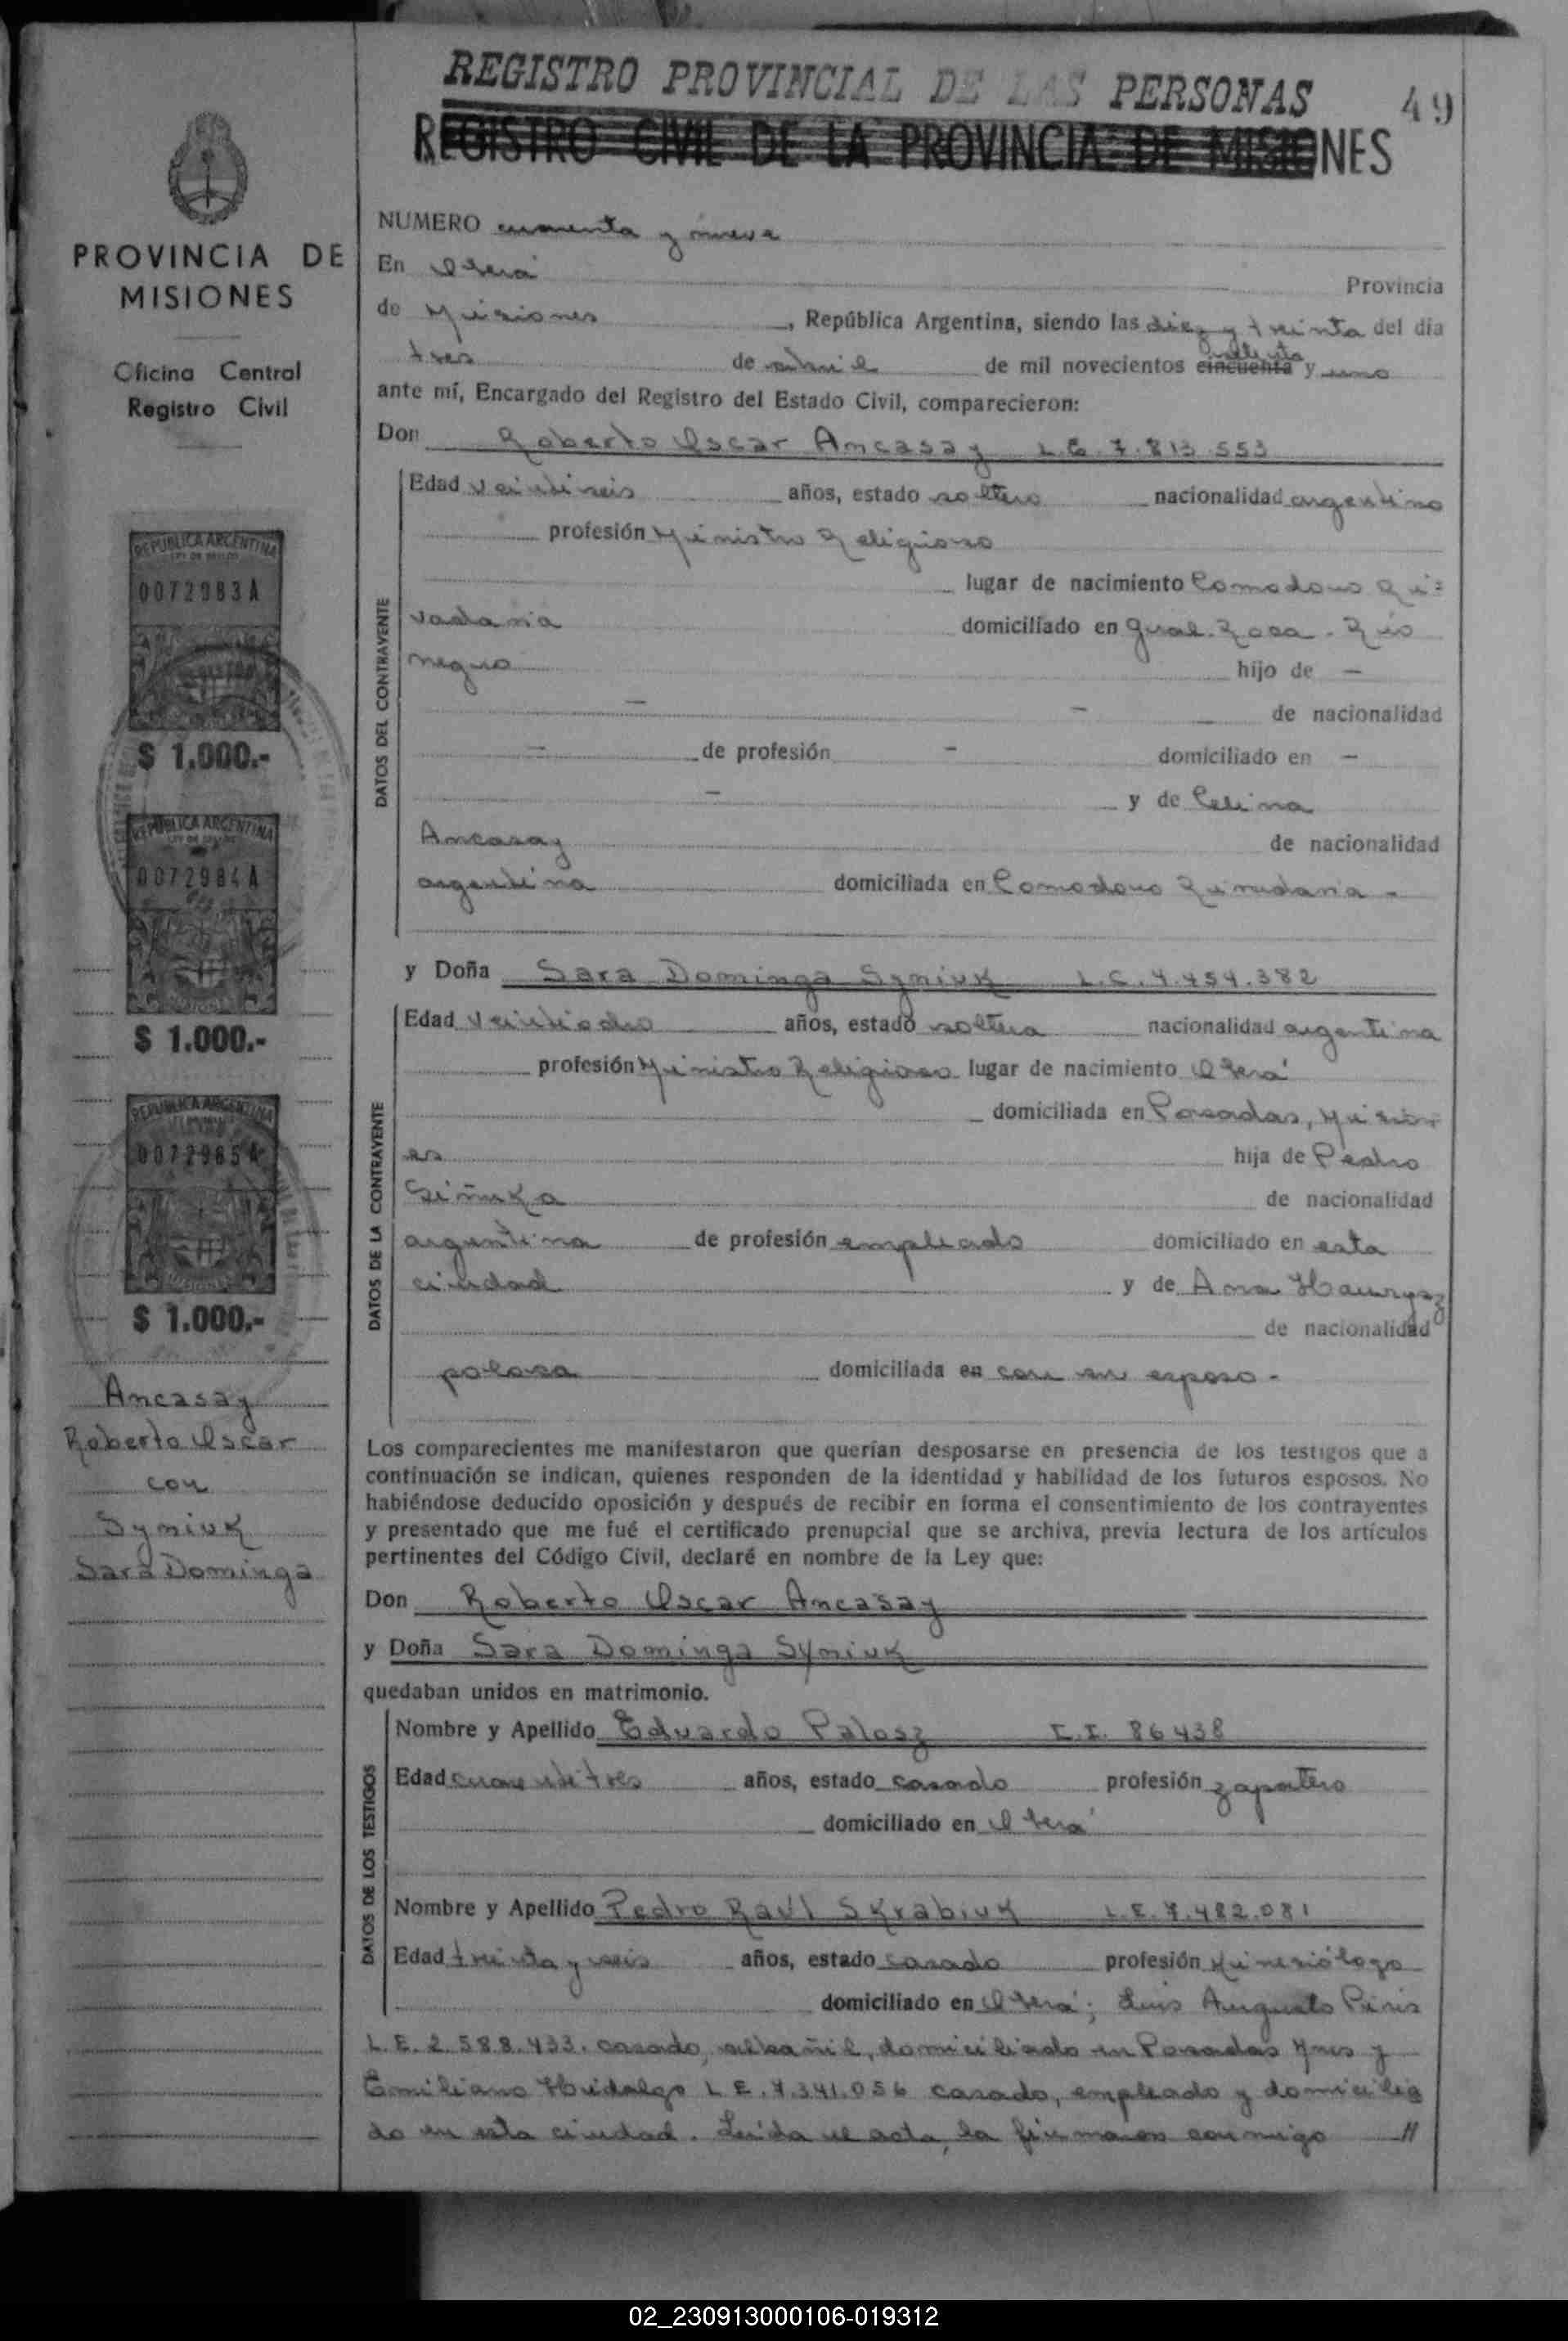 REGISTRO PROVINCIAL DE LAS PERSONAS
49
REGISTRO CIVIL DE LA PROVINCIA DE MISIONES
PROVINCIA DE
MISIONES
Oficina Central
Registro Civil
REPUBLICA ARGENTINA
0072983A
$ 1.000.-
REPUBLICA ARGENTINA
0072984A
$ 1.000.-
REPUBLICA ARGENTINA
0072985A
$ 1.000.-
Ancasay
Roberto Oscar
con
Syniuk
Sara Dominga
NUMERO cuarenta y nueve
En Oberá Provincia
de Misiones, República Argentina, siendo las diez y treinta del día
tres de abril de mil novecientos cincuenta setenta y uno
ante mí, Encargado del Registro del Estado Civil, comparecieron:
Don Roberto Oscar Ancasay L.E. 7.813.553
DATOS DEL CONTRAYENTE
Edad veintiseis años, estado soltero nacionalidad argentino
profesión Ministro Religioso
lugar de nacimiento Comodoro Ri=
vadavia domiciliado en Gral. Roca. Rio
negro hijo de —
— — de nacionalidad
— de profesión — domiciliado en —
— y de Celina
Ancasay de nacionalidad
argentina domiciliada en Comodoro Rivadavia -
y Doña Sara Dominga Syniuk L.C. 4.454.382
DATOS DE LA CONTRAYENTE
Edad veintiocho años, estado soltera nacionalidad argentina
profesión Ministro Religioso lugar de nacimiento Oberá
domiciliada en Posadas, Mision
es hija de Pedro
Siñuka de nacionalidad
argentina de profesión empleado domiciliado en esta
ciudad y de Ana Haurysz
de nacionalidad
polaca domiciliada en con su esposo -
Los comparecientes me manifestaron que querían desposarse en presencia de los testigos que a
continuación se indican, quienes responden de la identidad y habilidad de los futuros esposos. No
habiéndose deducido oposición y después de recibir en forma el consentimiento de los contrayentes
y presentado que me fué el certificado prenupcial que se archiva, previa lectura de los artículos
pertinentes del Código Civil, declaré en nombre de la Ley que:
Don Roberto Oscar Ancasay
y Doña Sara Dominga Syniuk
quedaban unidos en matrimonio.
DATOS DE LOS TESTIGOS
Nombre y Apellido Eduardo Palosz C.I. 86438
Edad cuarentitres años, estado casado profesión zapatero
domiciliado en Oberá
Nombre y Apellido Pedro Raúl Skrabiuk L.E. 7.482.081
Edad treinta y seis años, estado casado profesión Kinesiólogo
domiciliado en Oberá; Luis Augusto Piris
L.E. 2.588.433. casado, albañil, domiciliado en Posadas Mnes y
Emiliano Hidalgo L.E. 7.341.056 casado, empleado y domicilia
do en esta ciudad. Leida el acta, la firmaron conmigo //
02_230913000106-019312